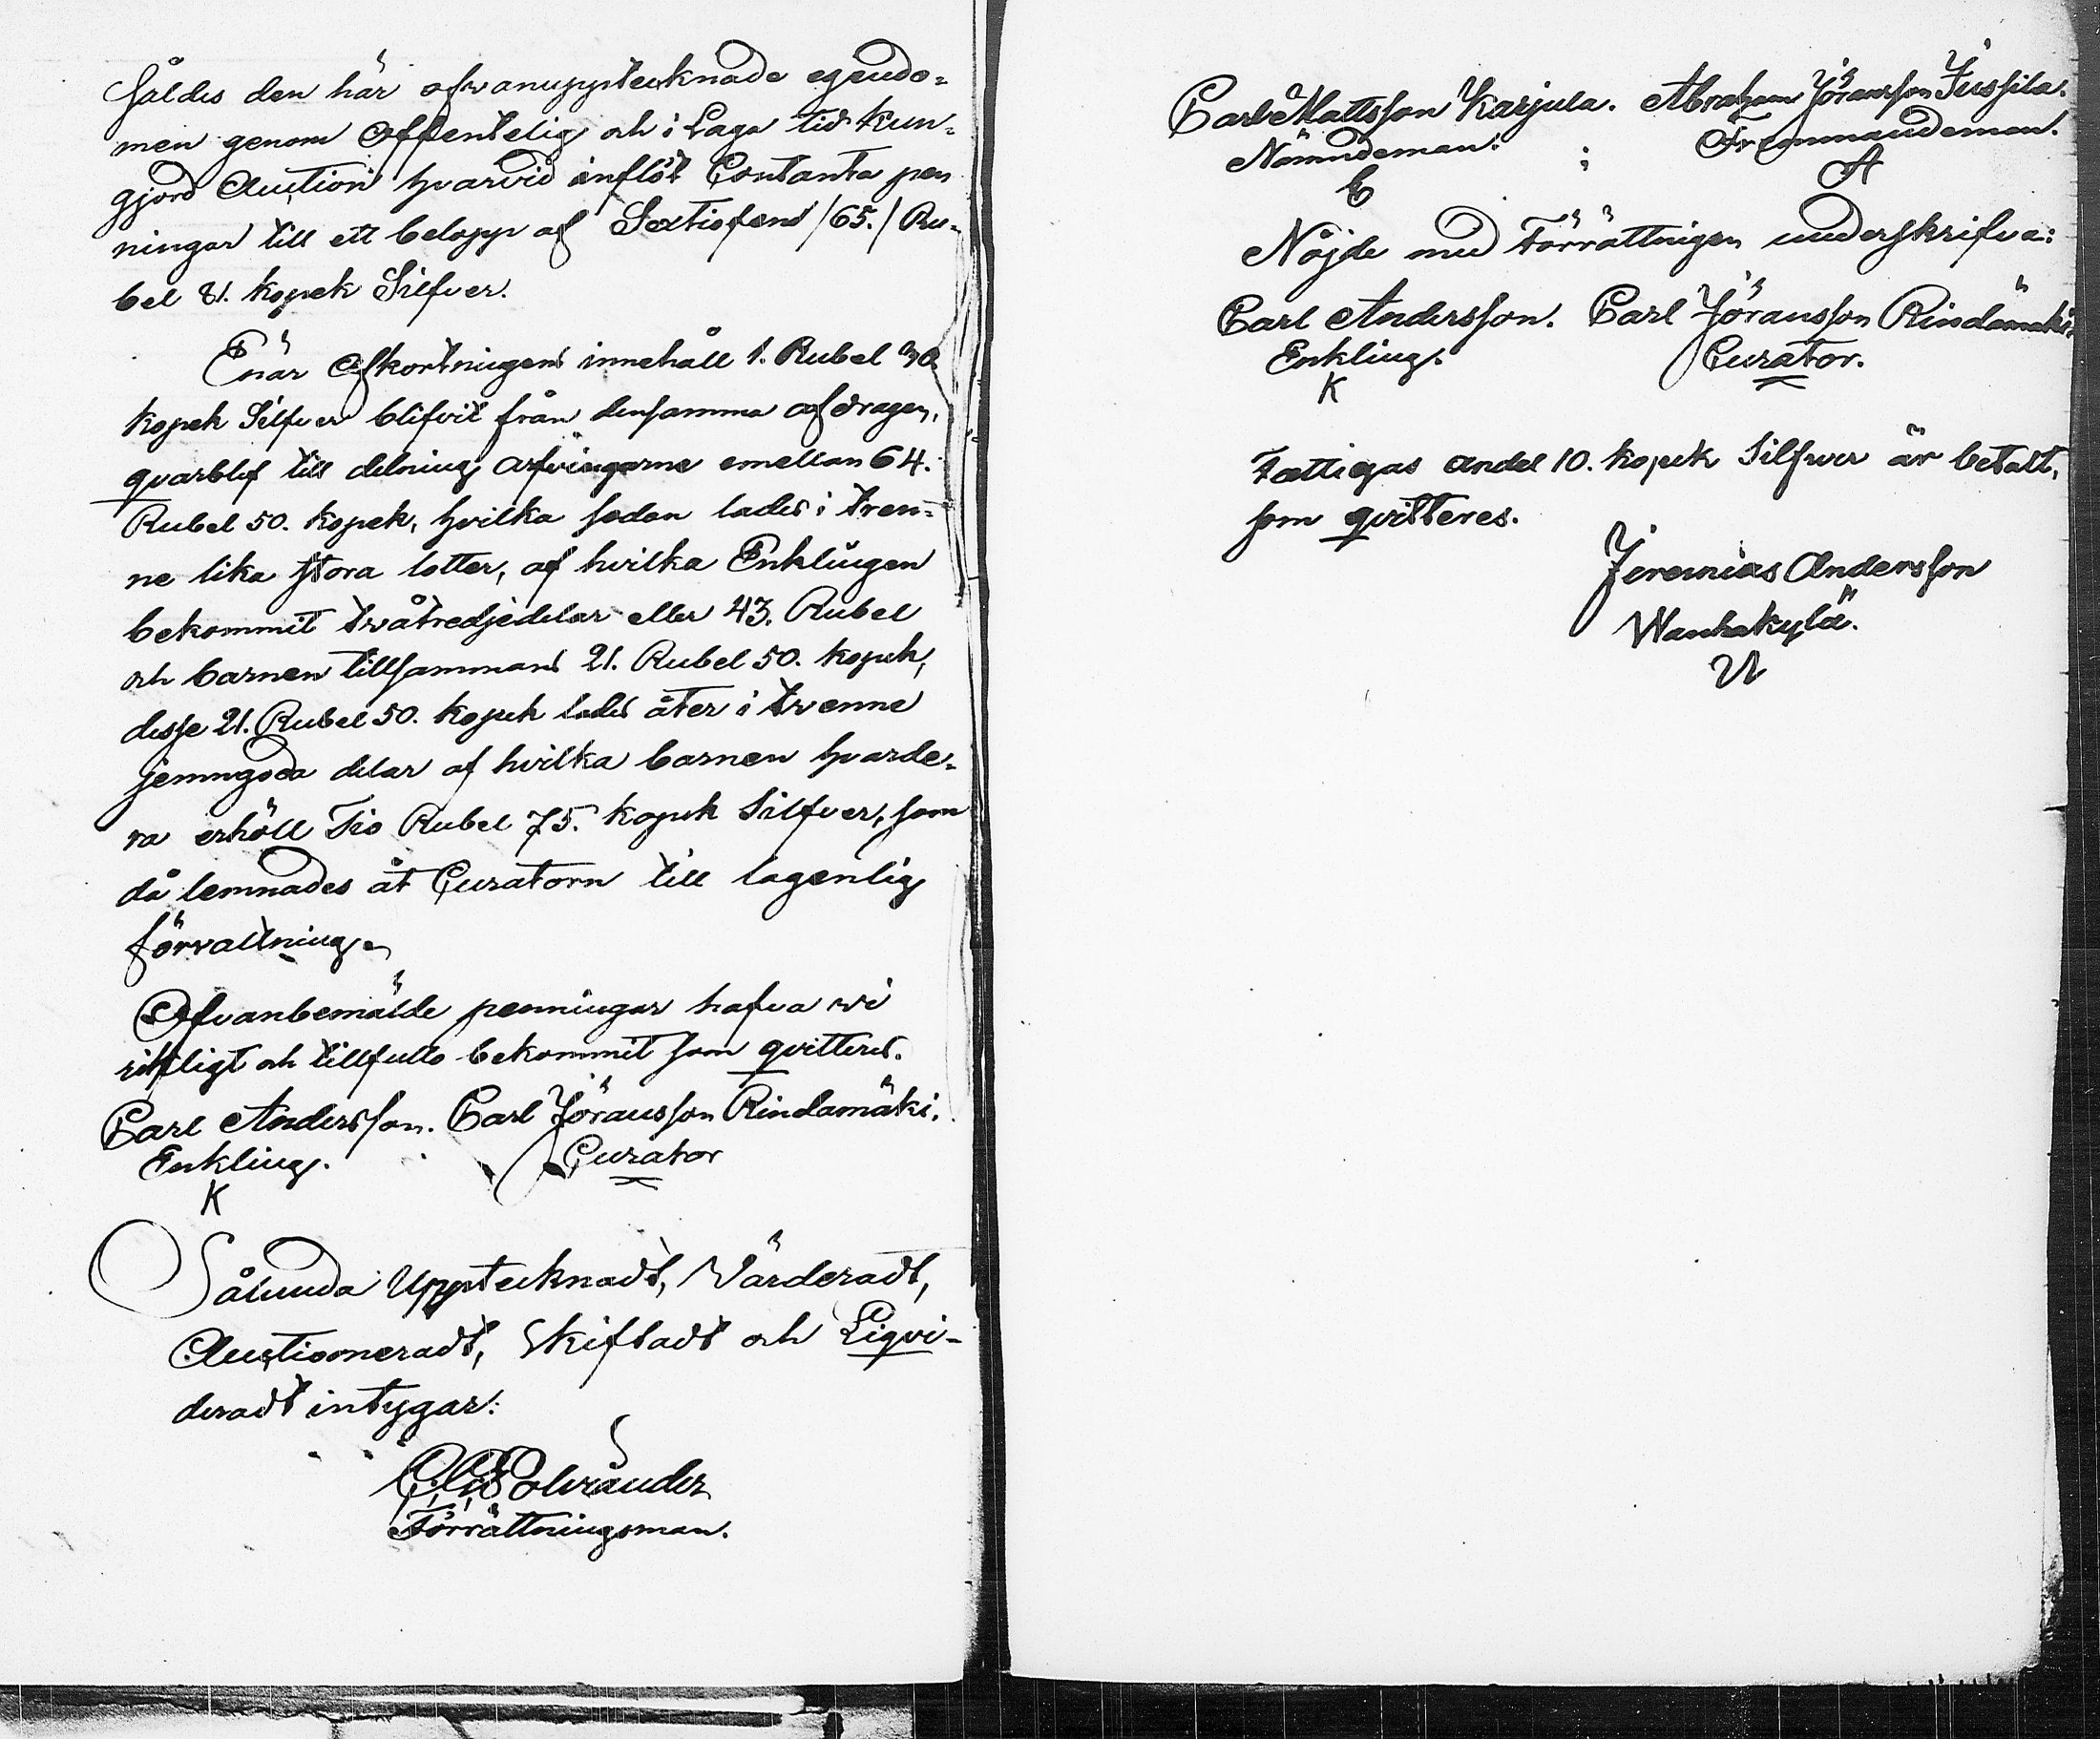 såldes den här ofvanupptecknade egendo=
men genom offentelig och i Laga tid kun=
gjord Auction hvarvid inflöt Contanta pen
ningar till ett belopp af Sextiofem /65./ Ru=
bel 81. kopek Silfver.
Enär Afkortningens innehåll 1. Rubel 30
kopek Silfver blifvit från densamma afdragen,
qvarblef till delning arfvingarne emellan 64.
Rubel 50. kopek, hvilka sedan lades i tren=
ne lika stora lotter, af hvilka Enklingen
bekommit tvåtredjedelar eller 43. Rubel
och barnen tillsammans 21. Rubel 50. kopek,
desse 21. Rubel 50. kopek lades åter i tvenne
jemngoda delar af hvilka barnen hvarde=
ra erhöll Tio Rubel 75. kopek Silfver, som
då lemnades åt Curatorn till lagenlig
förvaltning.
Ofvanbemälde penningar hafva wi
riktligt och tillfullo bekommit som qvitteres.
Carl Andersson. Carl Jöransson Rindamäki.
Enkling. Curator
K
Sålunda Upptecknadt, Värderadt,
Auctioneradt, Skiftadt och Liqvi-
deradt intygar:
Förrättningsman.
Carl Mattsson Karjula. Abraham Jöransson Jussila.
Nämndeman. Fremmandeman.
A
Nöjde med Förrättnigen underskrifva:
Carl Andersson. Carl Jöransson Rindamäki.
Enkling. Curator.
K
Fattigas andel 10. kopek Silfwer är betalt,
som qvitteres.
Jeremias Andersson
Wanhakylä.